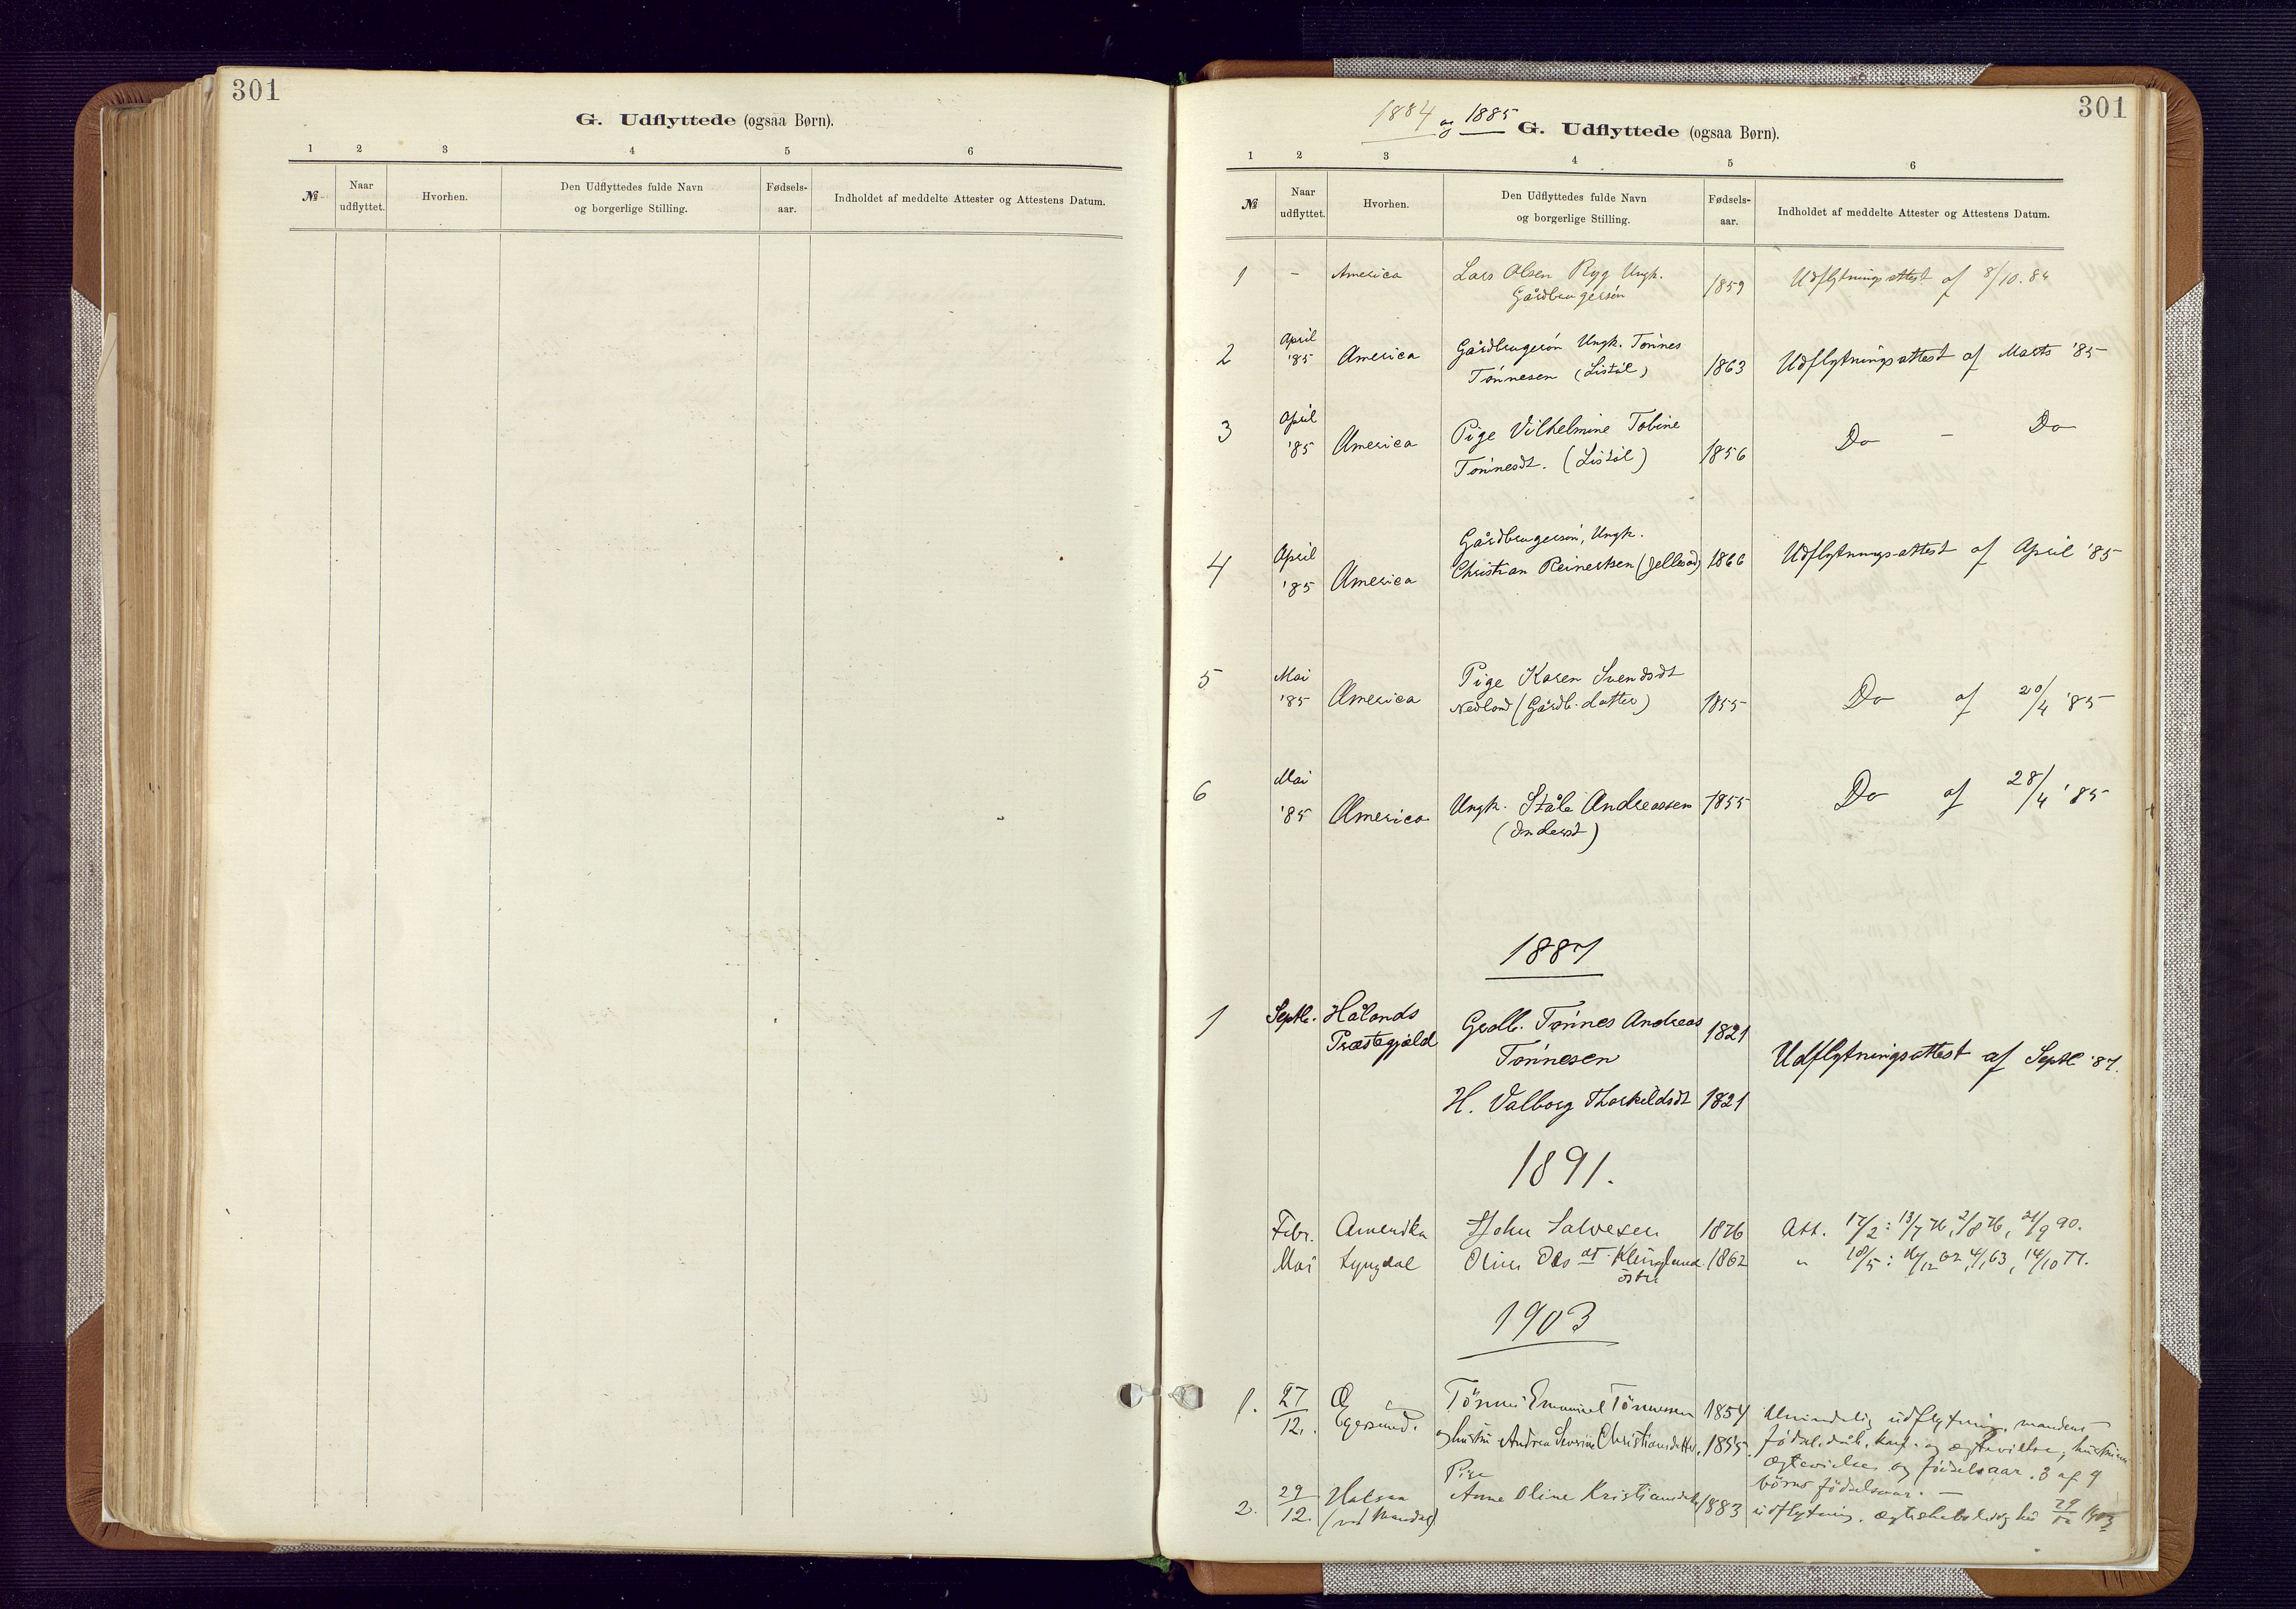 301
G. Udflyttede (ogsaa Børn).
1 2 3 4 5 6
№ Naar udflyttet. Hvorhen. Den Udflyttedes fulde Navn og borgerlige Stilling. Fødsels-aar. Indholdet af meddelte Attester og Attestens Datum.
301
1884 og 1885
G. Udflyttede (ogsaa Børn).
1 2 3 4 5 6
№ Naar udflyttet. Hvorhen. Den Udflyttedes fulde Navn og borgerlige Stilling. Fødsels-aar. Indholdet af meddelte Attester og Attestens Datum.
1 – America Lars Olsen Ryg Ungk. 1859 Udflytningsattest af 8/10. 84
Gårdbrugersön
2 April '85 America Gårdbrugersön Ungk. Tönnes 1863 Udflytningsattest af Marts '85
Tönnesen (Listöl)
3 April '85 America Pige Vilhelmine Tobine 1856 Do – Do
Tönnesdt. (Listöl)
4 April '85 America Gårdbrugersön, Ungk.
Christian Reinertsen (Jellesad) 1866 Udflytnings-attest af April '85
5 Mai '85 America Pige Karen Svendsdt
Nedland (Gårdb. datter) 1855 Do af 20/4 '85
6 Mai '85 America Ungk. Ståle Andreassen 1855 Do af 28/4 '85
1887
1 Septb. Hålands Præstegjæld Grdb. Tönnes Andreas 1821
Tönnesen Udflytningsattest af Septb '87.
H. Valborg Thorkildsdt 1821
1891.
Febr. Amerika John Salvesen 1876 Att. 17/2: 13/7 76, 2/8 76, 21/9 90.
Mai Lyngdal Oline Ols dt Klungland 1862 " 18/5: 4/1 63, 14/10 77.
östre
1903
1. 27/12. Egersund. Tönnes Emanuel Tönnessen 1854 Almindelig udflytning, mandens
og hustru Andrea Severine Christiansdatter. 1855. födsel, dåb, konf. og ægtevielse, hustruens
ægtevielse og födselsaar. 3 af 4
börns födselsaar. –
2. 29/12. Halsaa (ved Mandal) Pige
Anne Oline Kristiansdatter 1883 udflytning. 29/12 1903